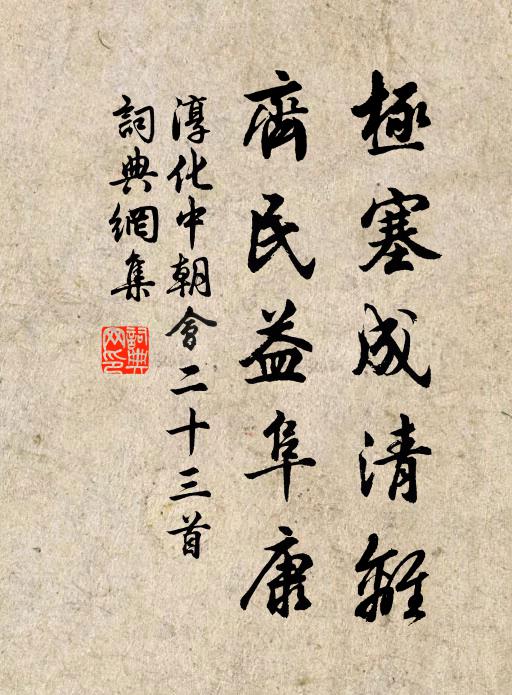 極塞成清難
齊民益阜康
淳化中朝會二十三首
詞典網集
詞典网印